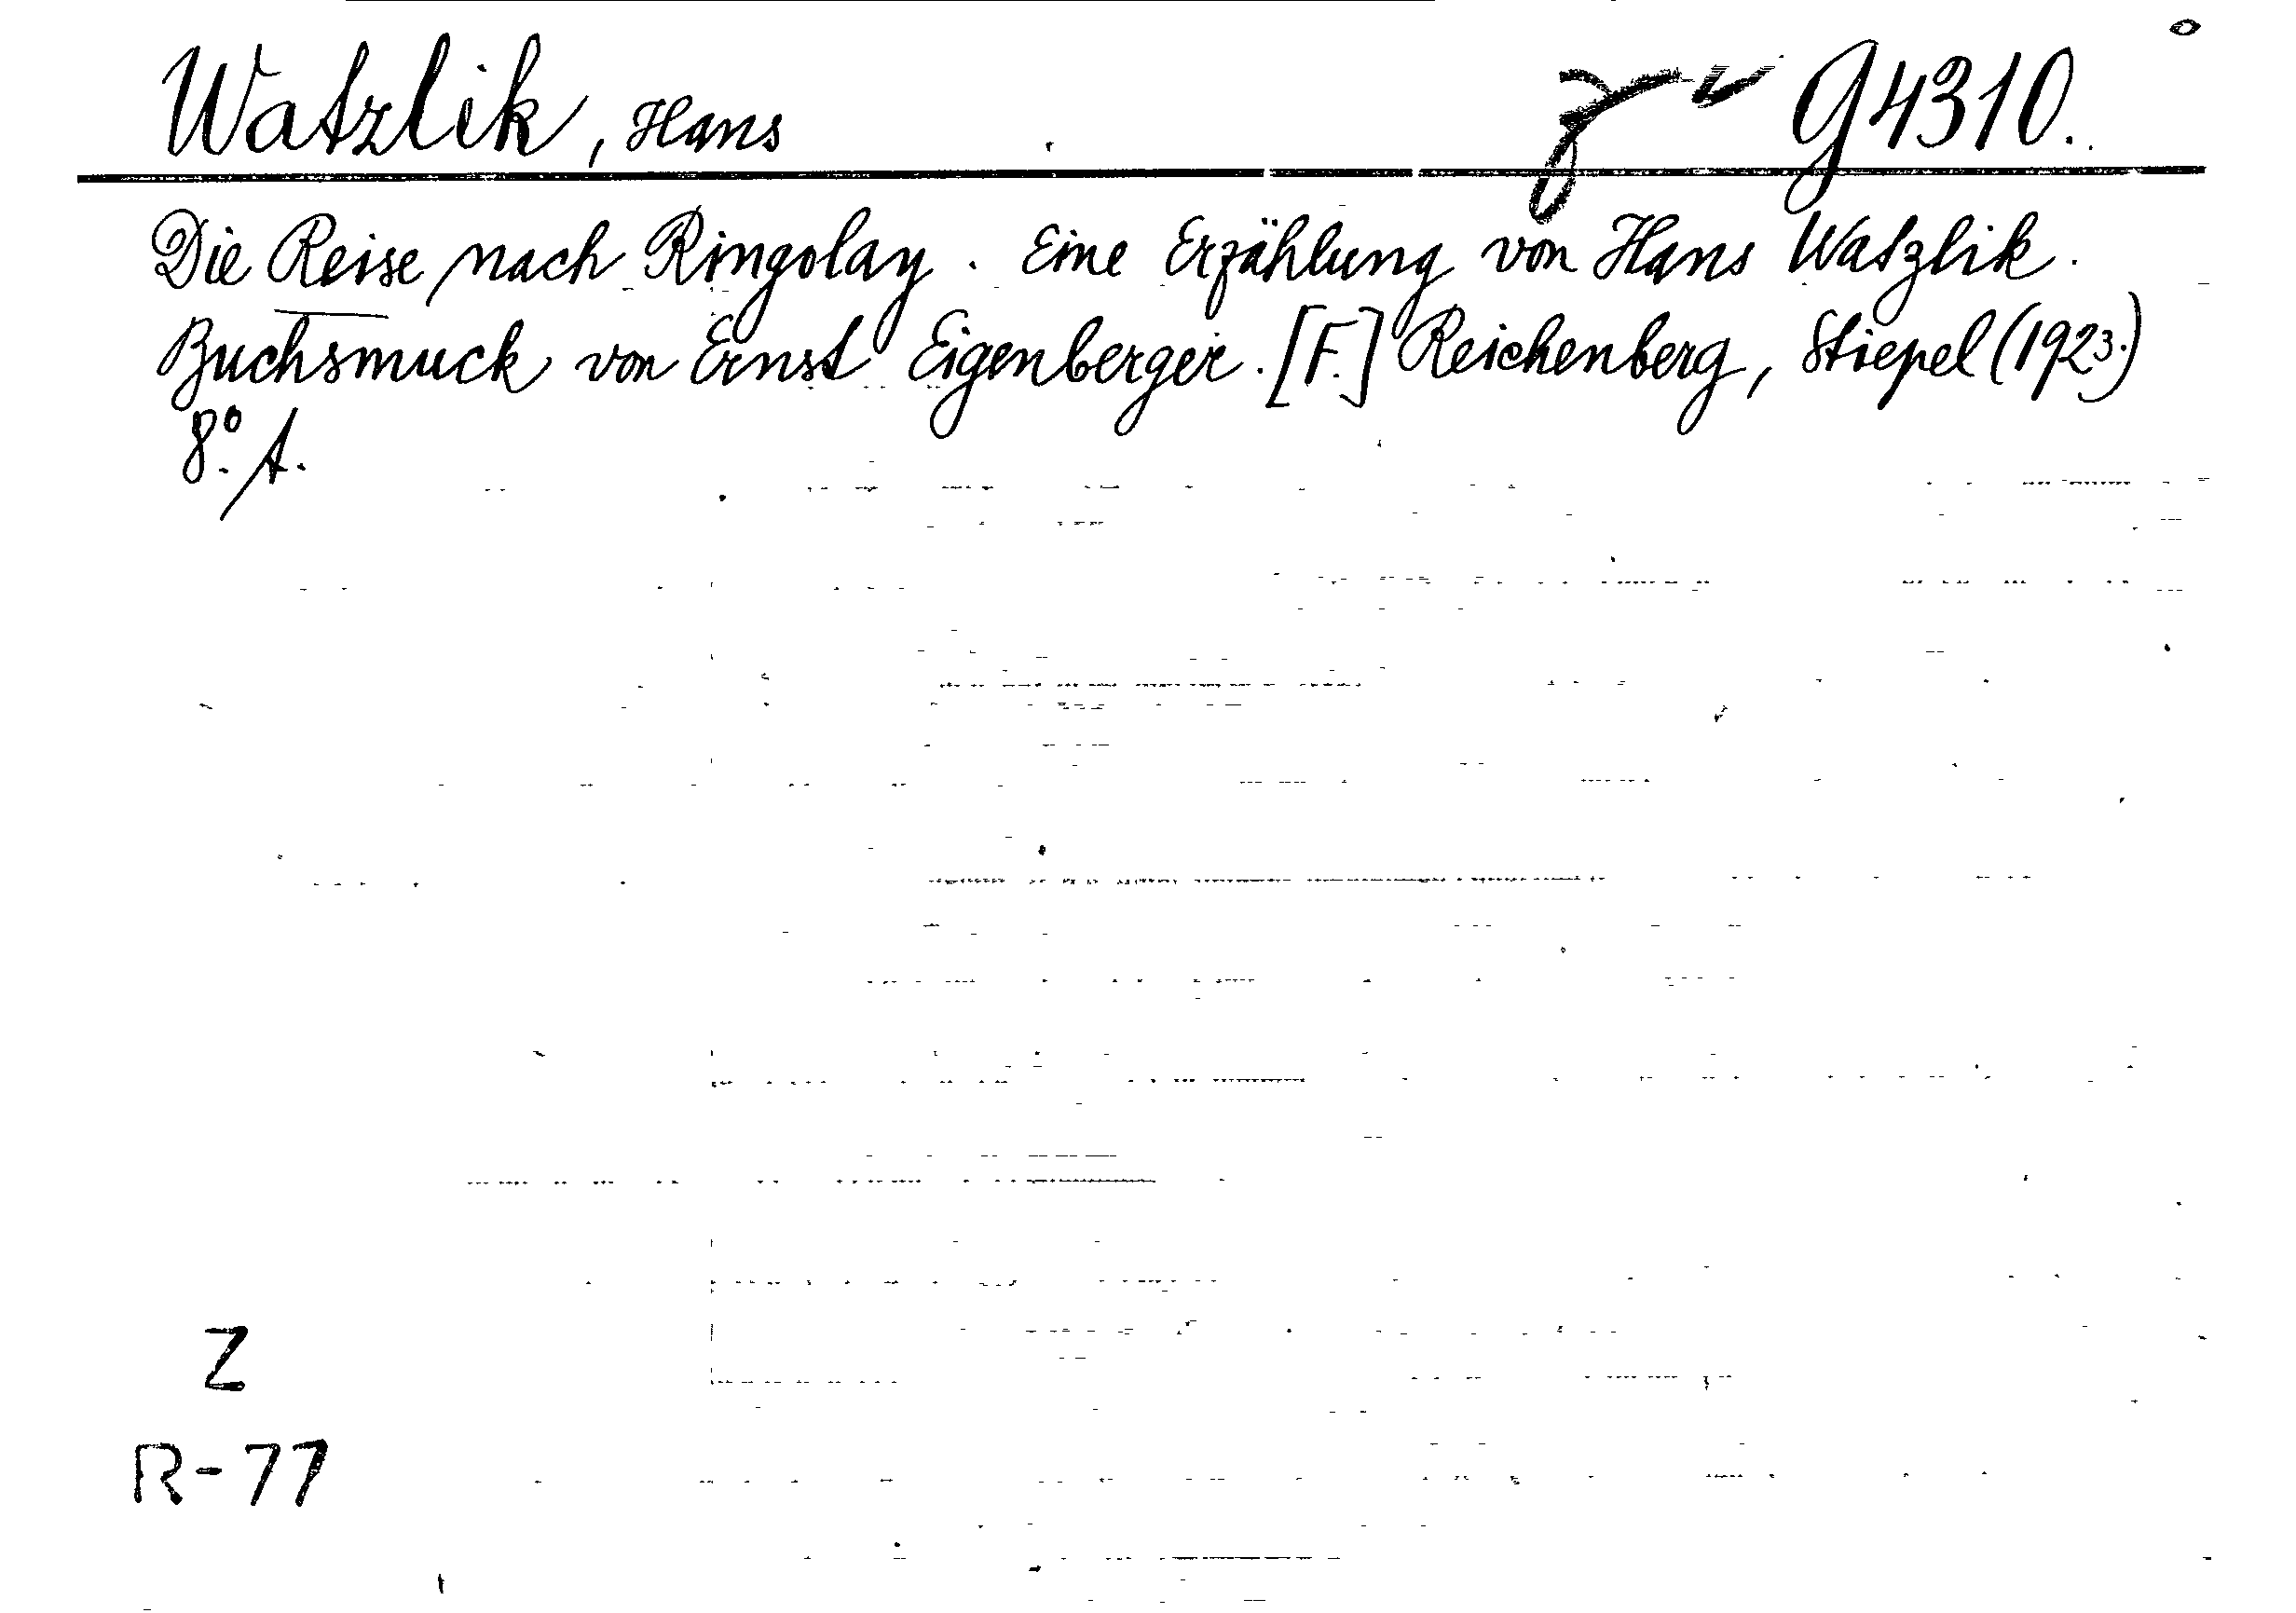 Watzlik, Hans G4310.
Die Reise nach Ringolay. Eine Erzählung von Hans Watzlik.
Buchsmuck von Ernst Eigenberger. [F.] Reichenberg, Stiepel (1923.)
8°. A.
Z
R-77